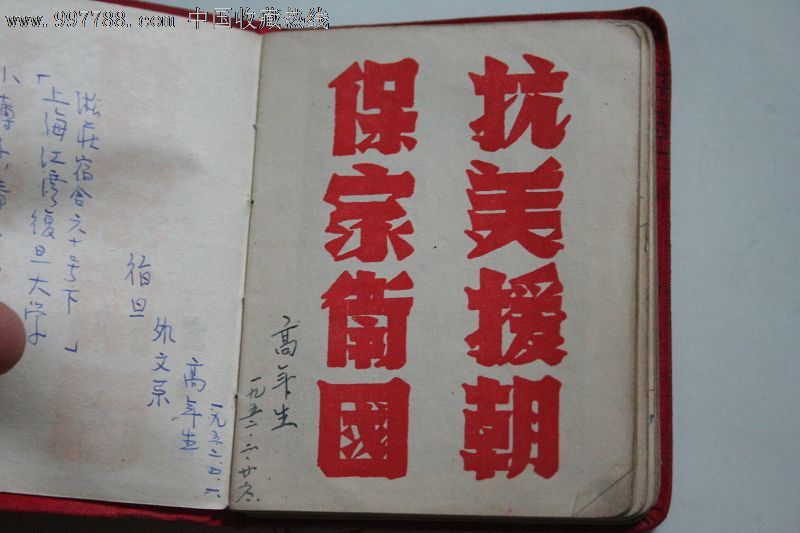 www.997788.com 中国收藏热线
抗美援朝
保家衛國
高年生
一九五二.二.廿六.
淞莊宿舍六十号下
「上海江湾復旦大学」
復旦
外文系
高年生
一九五二.四.六